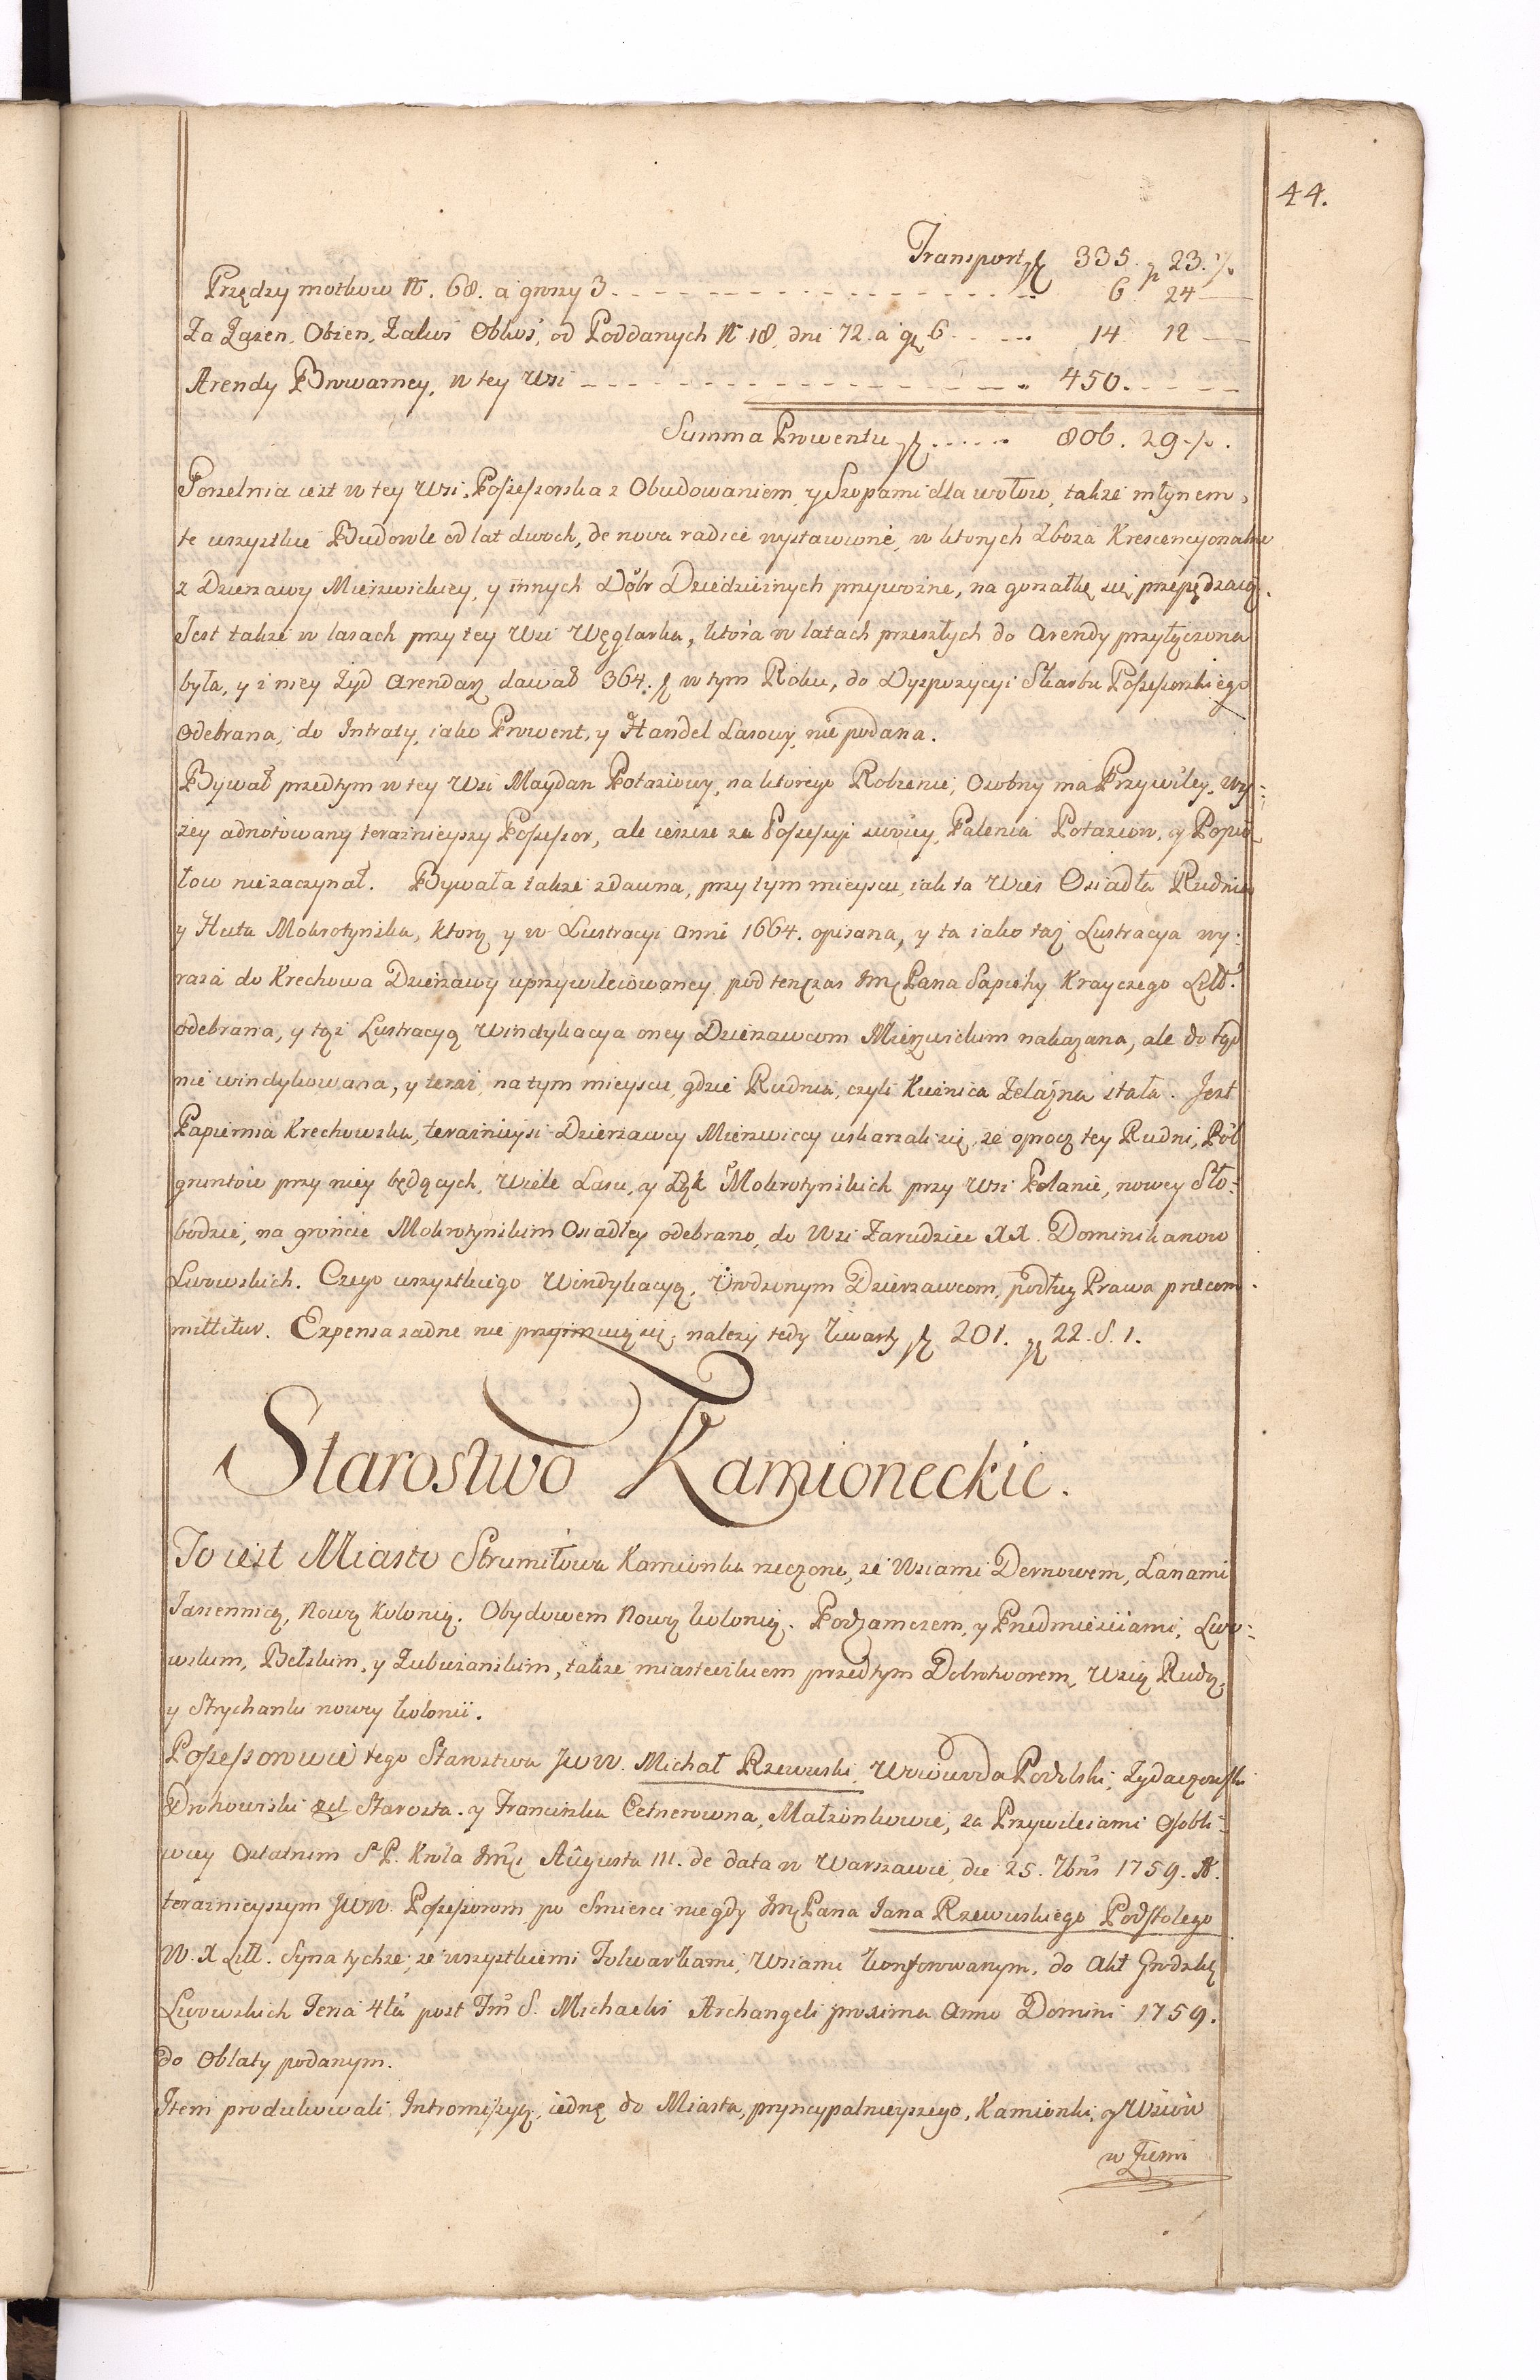 44.
Transport zł 335. gr 23. ½.
Przędzy motkow N. 68. a groszy 3 6 24
Za Zazen, Obzen, Zakos Obkos, od Poddanych N. 18, dni 72. a gr 6 14 12
Arendy Browarney, w tey Wsi 450.
Summa Prowentu zł 806. 29 ½.
Gorzelnia iest w tey Wsi, Possessorska z Obudowaniem, y Szopami dla wołow, także młynem,
te wszystkie Budowle od lat dwoch, de nova radice wystawione, w ktorych Zboża Krescencyonalne
z Dzierzawy Mierzwickiey, y innych Dobr Dziedzicznych przywozne, na gorzałkę się przepędzaią.
Jest także w lasach przy tey Wsi Węglarka, ktora w latach przeszłych do Arendy przyłączona
była, y z niey Żyd Arendarz dawał 364. zł w tym Roku, do Dyspozycyi Skarbu Possessorskiego
odebrana, do Intraty, iako Prowent, y Handel Lasowy, nie podana.
Bywał przedtym w tey Wsi Maydan Potaziowy, na ktorego Robienie, Osobny ma Przywiley, wy=
żey adnotowany teraznieyszy Possessor, ale ieszcze za Possessyi swoiey, Palenia Potaziow, y Popio
łow nie zaczynał. Bywała także zdawna, przy tym mieyscu, iak ta Wieś Osiadła Rudnia
y Huta Mokrotynska, ktorą y w Lustracyi Anni 1664. opisana, y ta iako taż Lustracya wy=
raża do Krechowa Dzierzawy uprzywileiowaney pod tenczas Jmć Pana Sapiehy Krayczego Litt.
odebrana, y tąż Lustracyą Windykacya oney Dzierzawcom Mierzwickim nakazana, ale do tąd
nie windykowana, y teraz, na tym mieyscu, gdzie Rudnia, czyli Kuznica Żelazna stała. Jest
Papiernia Krechowska, teraznieysi Dzierzawcy Mierzwiccy uskarzali się, że oprocz tey Rudni, Pol
gruntow przy niey będących, wiele Lasu, y Łąk Mokrotynskich przy Wsi Polanie, nowey Sło=
bodzie, na gruncie Mokrotynskim Osiadłey odebrano, do Wsi Zarudzice XX. Dominikanow
Lwowskich. Czego wszystkiego Windykacyą, Urodzonym Dzierzawcom, podług Prawa præcom=
mittitur. Expensa żadne nie przyimuią się, należy tedy kwarty zł 201. gr 22. S. 1.
Starostwo Kamioneckie.
To iest Miasto Strumiłowa Kamionka rzeczone, ze Wsiami Dernowem, Łanami
Jasiennicą, Nową Kolonią. Obydowem Nową kolonią. Podzamczem, y Przedmieściami, Lwo=
wskim, Bełskim, y Zabużanskim, także miasteczkiem przedtym Dobrotworem, Wsią Rudą,
y Strychanką nowey kolonii.
Possessorowie tego Starostwa JWW. Michał Rzewuski, Woiewoda Podolski, Zydaczowski
Drohowiski etc Starosta. y Franciszka Cetnerowna, Małżonkowie, za Przywileiami Osobli=
wiey Ostatnim S. P. Krola Jmci Augusta III. de data w Warszawie, die 25. 7bris 1759. A.
teraznieyszym JWW. Possessorom po Smierci niegdy Jmć Pana Jana Rzewuskiego Podstolego
W. X Litt. Syna tychże, ze wszystkiemi Folwarkami, Wsiami konferowanym, do Akt Grodzkich
Lwowskich Feria 4ta post Fm S. Michaelis Archangeli proxima Anno Domini 1759.
do Oblaty podanym.
Item produkowali Intromissyą, iednę do Miasta, pryncypalnieyszego, Kamionki, y Wsiow
w Ziemi